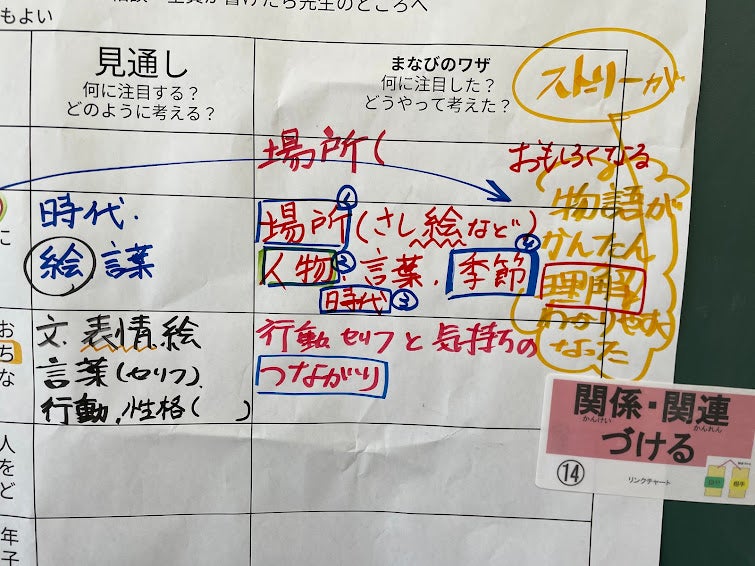 もよい
見通し
何に注目する?
どのように考える?
まなびのワザ
何に注目した?
どうやって考えた?
ストーリーが
場所(
おもしろくなる
時代.
絵 言葉
場所(さし絵など)①
人物②.言葉.季節④
時代③
物語が
かんたん
理解
わかりやすく
なった
に
文.表情絵
言葉(セリフ).
行動.性格( )
行動セリフと気持ちの
つながり
お
ち
な
関係・関連
かんけい かんれん
づける
⑭
リンクチャート
人
を
ど
年
子